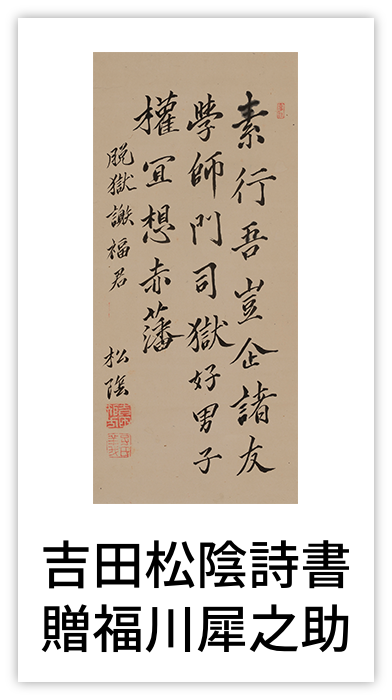 素行吾豈企諸友
學師門司獄好男子
權冝想赤藩
脱獄謝福君
松陰
吉田松陰詩書
贈福川犀之助